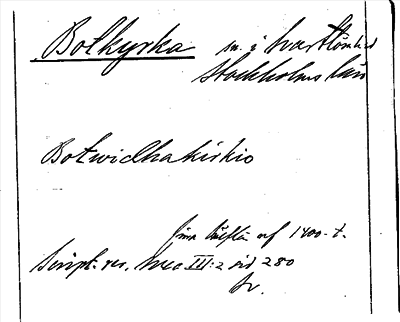 Botkyrka sn. i Svartlösa hd
Stockholms län
Botwidhakirkio
för 1400-t.
Script. rer. Svec. III:2 sid 280